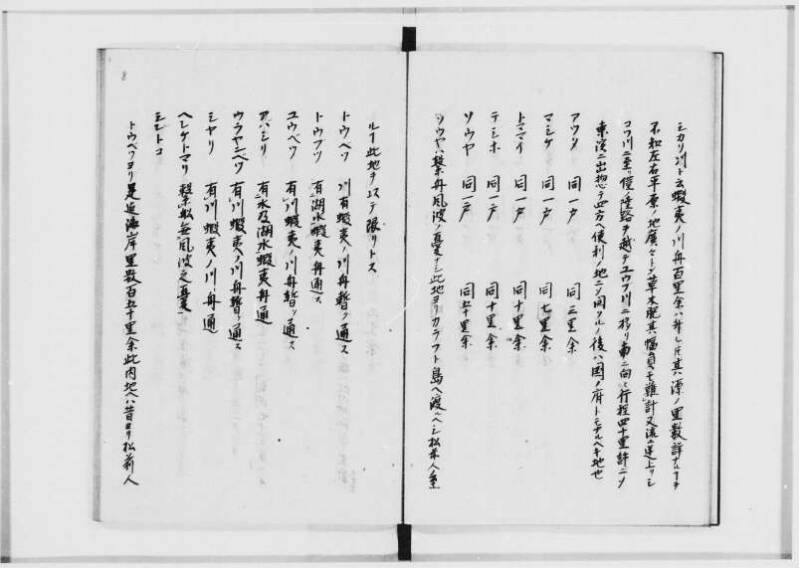 シカリ川ト云蝦夷ノ川舟百里余ハ舟レ𪜈其ハ源ノ里数詳ナルヿヲ
不知左右平原ノ地廣クシテ草木肥其幅員モ難計又流ヲ逆上リシ
コツ川ニ至リ僅ノ陸路ヲ越テユウブツ川ニ移リ南ニ向ヒ行程四十里許ニシ
東濱ニ出惣テ四方ヘ便利ノ地ニシ開クルノ後ハ國ノ府トモナルヘキ地也
アツタ 同一戸 同三里余
マシケ 同一戸 同七里余
トママイ 同一戸 同十里余
テシホ 同一戸 同十里余
ソウヤ 同一戸 同五十里余
ソウヤハ繋舟風波ノ憂ナシ此地ヨリカラフト島ヘ渡ルヘシ松前人至
ルヿ此地ヲ以テ限リトス
トウベツ 川有蝦夷ノ川舟暫ク通ス
トウブツ 有湖水蝦夷舟通ス
ユウベツ 有川蝦夷ノ川舟暫ク通ス
アハシリ 有水及湖水蝦夷舟通
ウラヤシベツ 有川蝦夷ノ川舟暫ク通ス
シヤリ 有川蝦夷ノ川舟通
ヘレケトマリ 繋船無風波之憂
シレトコ
トウベツヨリ是迄海岸里数百五十里余此内地ヘハ昔ヨリ松前人
8